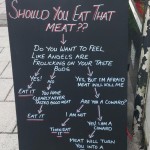 SHOULD YOU EAT THAT
MEAT??
DO YOU WANT TO FEEL
LIKE ANGELS ARE
FROLICKING ON YOUR TASTE
BUDS
YES
NO
YES BUT I'M AFRAID
MEAT WILL KILL ME
EAT IT
YOU HAVE
CLEARLY NEVER
TASTED GOOD MEAT
ARE YOU A COWARD?
EAT IT
I AM NOT
YES I AM A
COWARD
TURN INTO A